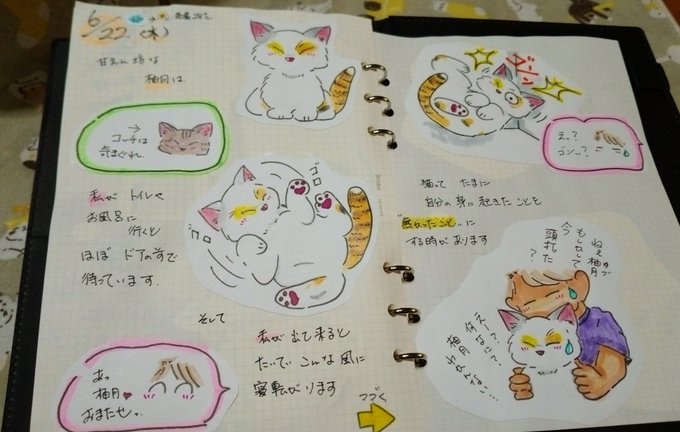 6/22(木)
甘えん坊な
柚月は
コッチは
気まぐれ。
私が トイレや
お風呂に
行くと
ほぼ ドアの前で
待っています。
ゴロ
ゴロ
そして
あっ
柚月♥
おまたせ。
私が 出て来ると
たいてい こんな 風に
寝転がります
つづく
ゴン
えっ?
ゴンッ?
猫って たまに
自分の 身に 起きた ことを
"無かったこと"に
する時が あります
ねぇ 柚月
もしかして
今
頭打った?
何えー?
なにー?
柚月
わかんない…